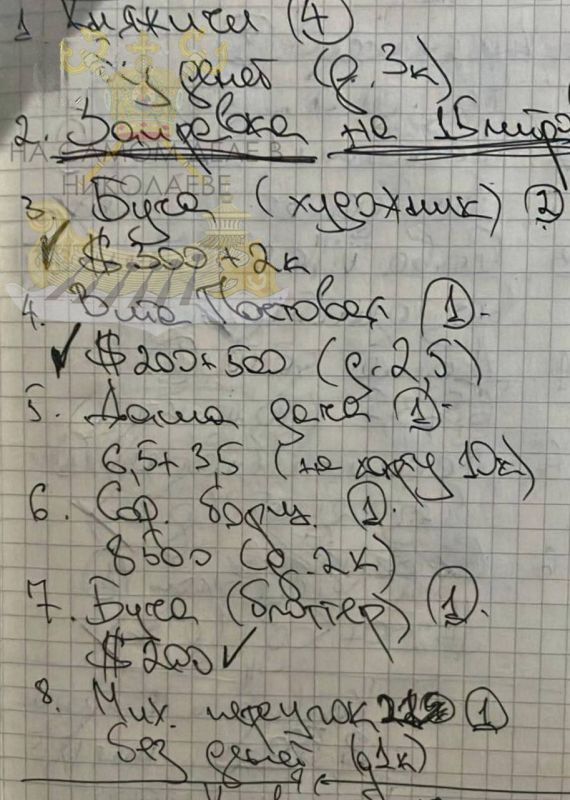 1. Княжичи (4)
Без денег (д. 3к)
2. Заправка на 15 литро
НА САМОМ ДЕЛЕ В
НИКОЛАЕВЕ
3. Буча (художник) (2)
✓ $ 300 + 2к
4. Вита Почтовая (1).
✓ $ 200 + 500 (д. 2,5)
5. Даша дача (1).
6,5 + 3,5 (на карту 10к)
6. Соф. борщ. (1).
8500 (д. 2к)
7. Буча (блоггер) (1).
$ 200 ✓
8. Мих. переулок (1)
без денег (д1к)